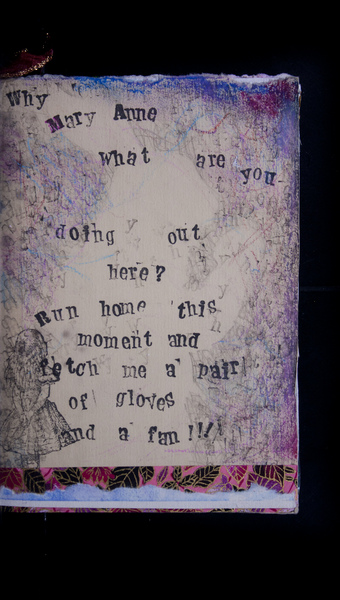 Why
Mary Anne
what are you
doing out
here?
Run home this
moment and
fetch me a pair
of gloves
and a fan!!!